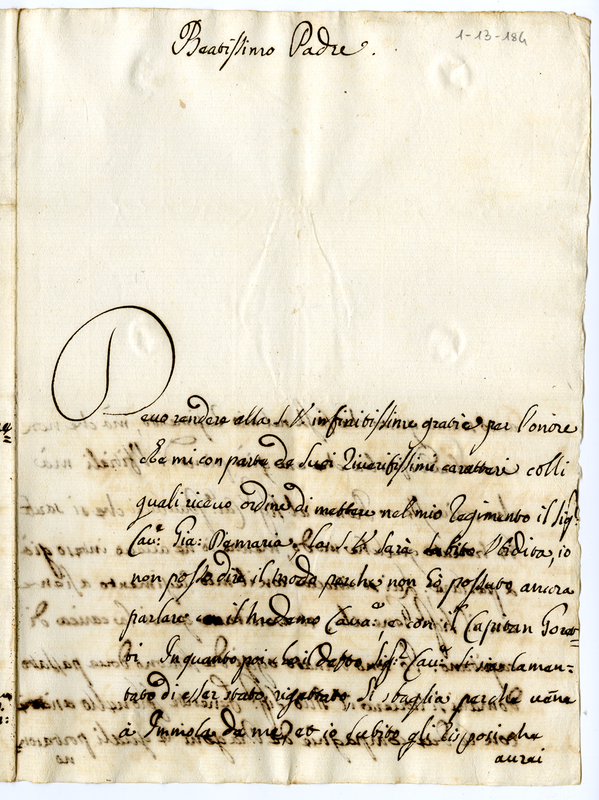 Beatissimo Padre.
1-13-184
Devo rendere alla S. V. infinitissime gratie per l'onore
che mi conparte de suoi riveritissimi caratteri colli
quali ricevo ordine di mettere nel mio Regimento il sigr
Cavr: Gia: la S. V. sarà subito Ubidita, io
non posso dire il modo perche non ho possuto ancora
parlare con il medemo Cavr, e con il Capitan
In quanto poi che il detto sigr: Cavr: si sia lamen=
tato di esser stato rigettato si sbaglia perche venne
à Immola da me, et io subito gli risposi che
avrei